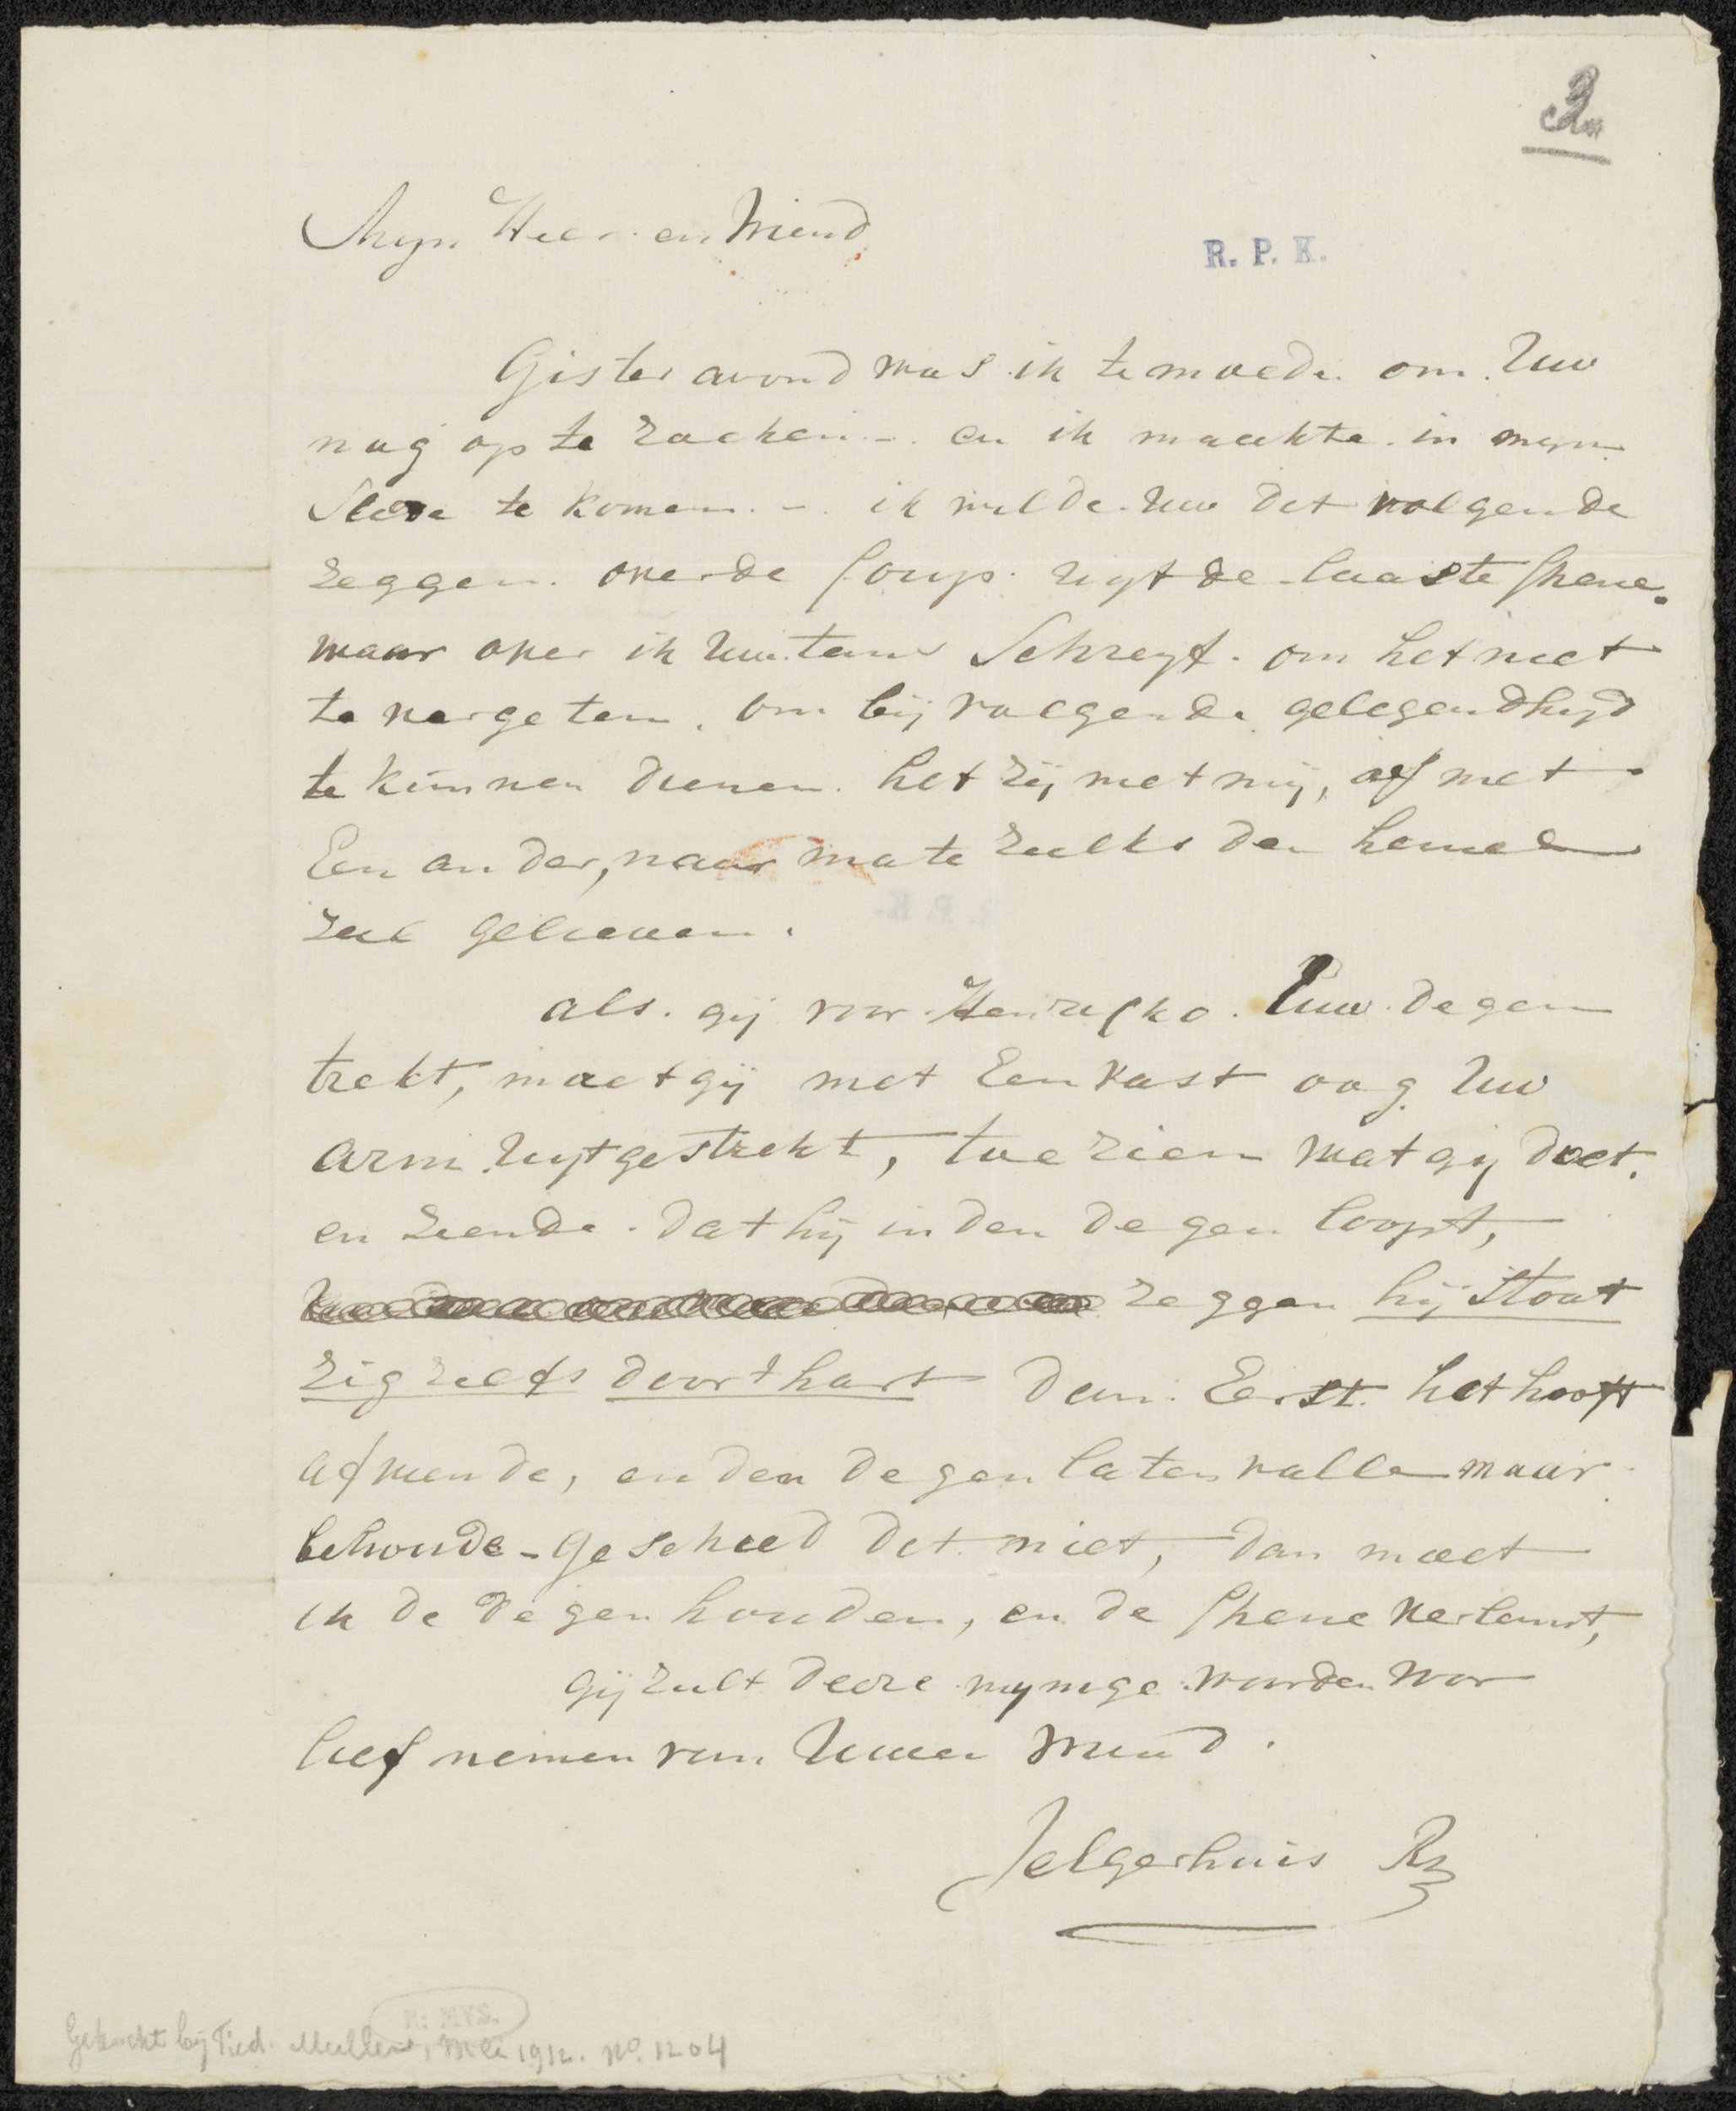 2
Myn Heer en Vriend
R. P. K.
Gister avond was ik te moede om Uw
nog op te zoeken - en ik maakte in myn
te komen. - ik wilde Uw det volgende
zeggen. over de Coup. uyt de laaste Shene.
waar over ik Uw tans Schreyf. om het niet
te vergeten. om bij volgende gelegendhyd
te kunnen dienen. het zij met mij, of met
Een ander, naar mate zulks den hemel
zal gelieven.
als. gij voor Uw degen
trekt, moet gij met Een vast oog Uw
arm uytgestrekt, toe zien wat gij doet.
en ziende. dat hij in den degen loopt,
zeggen hij stoot
zig zelfs door 't hart dan. Eerst. het hooft
afwende, en den degen laten valle maar
behoude - geschied det niet, dan moet
ik de degen houden, en de Shene verlamt,
gij zult deeze mynige woorden voor
lief nemen van Uwen Vriend.
Jelgerhuis Rz
R: MVS.
Gekocht bij Fred. Muller, Mei 1912. No. 1204